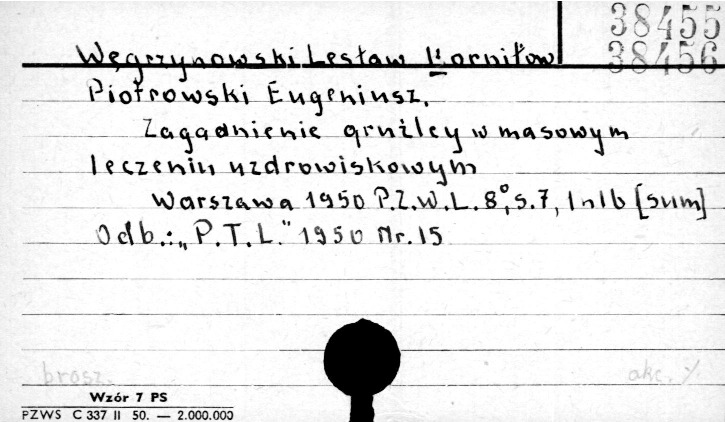 38455
38456
Węgrzynowski Lesław Korniłow
Piotrowski Eugeniusz.
Zagadnienie gruźlicy w masowym
leczeniu uzdrowiskowym
Warszawa 1950 P.Z.W.L. 8°, s.7, 1 nlb [sum]
Odb.: „P.T.L." 1950 Nr. 15
brosz. akc. %
Wzór 7 PS
PZWS C 337 II 50. — 2.000.000